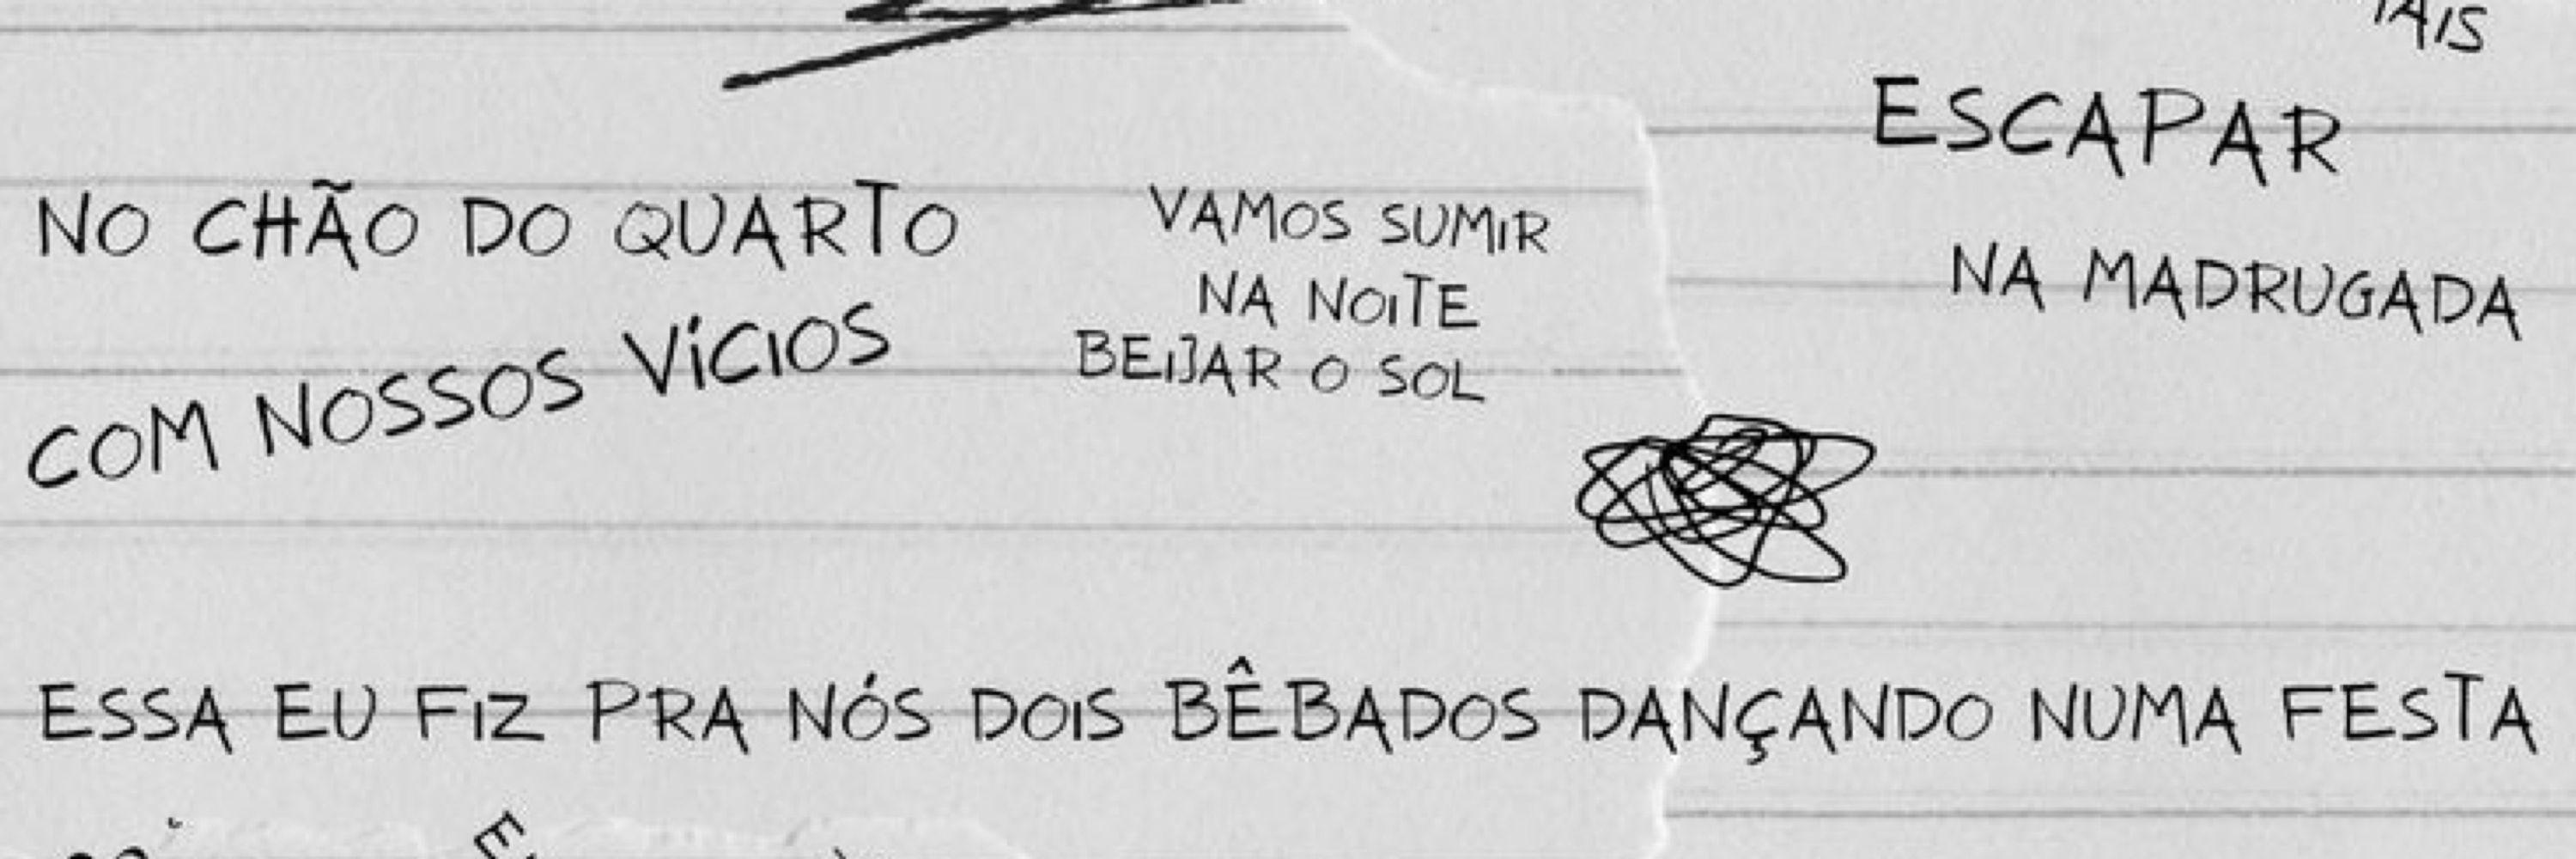 ESCAPAR
NA MADRUGADA
NO CHÃO DO QUARTO
COM NOSSOS VÍCIOS
VAMOS SUMIR
NA NOITE
BEIJAR O SOL
ESSA EU FIZ PRA NÓS DOIS BÊBADOS DANÇANDO NUMA FESTA